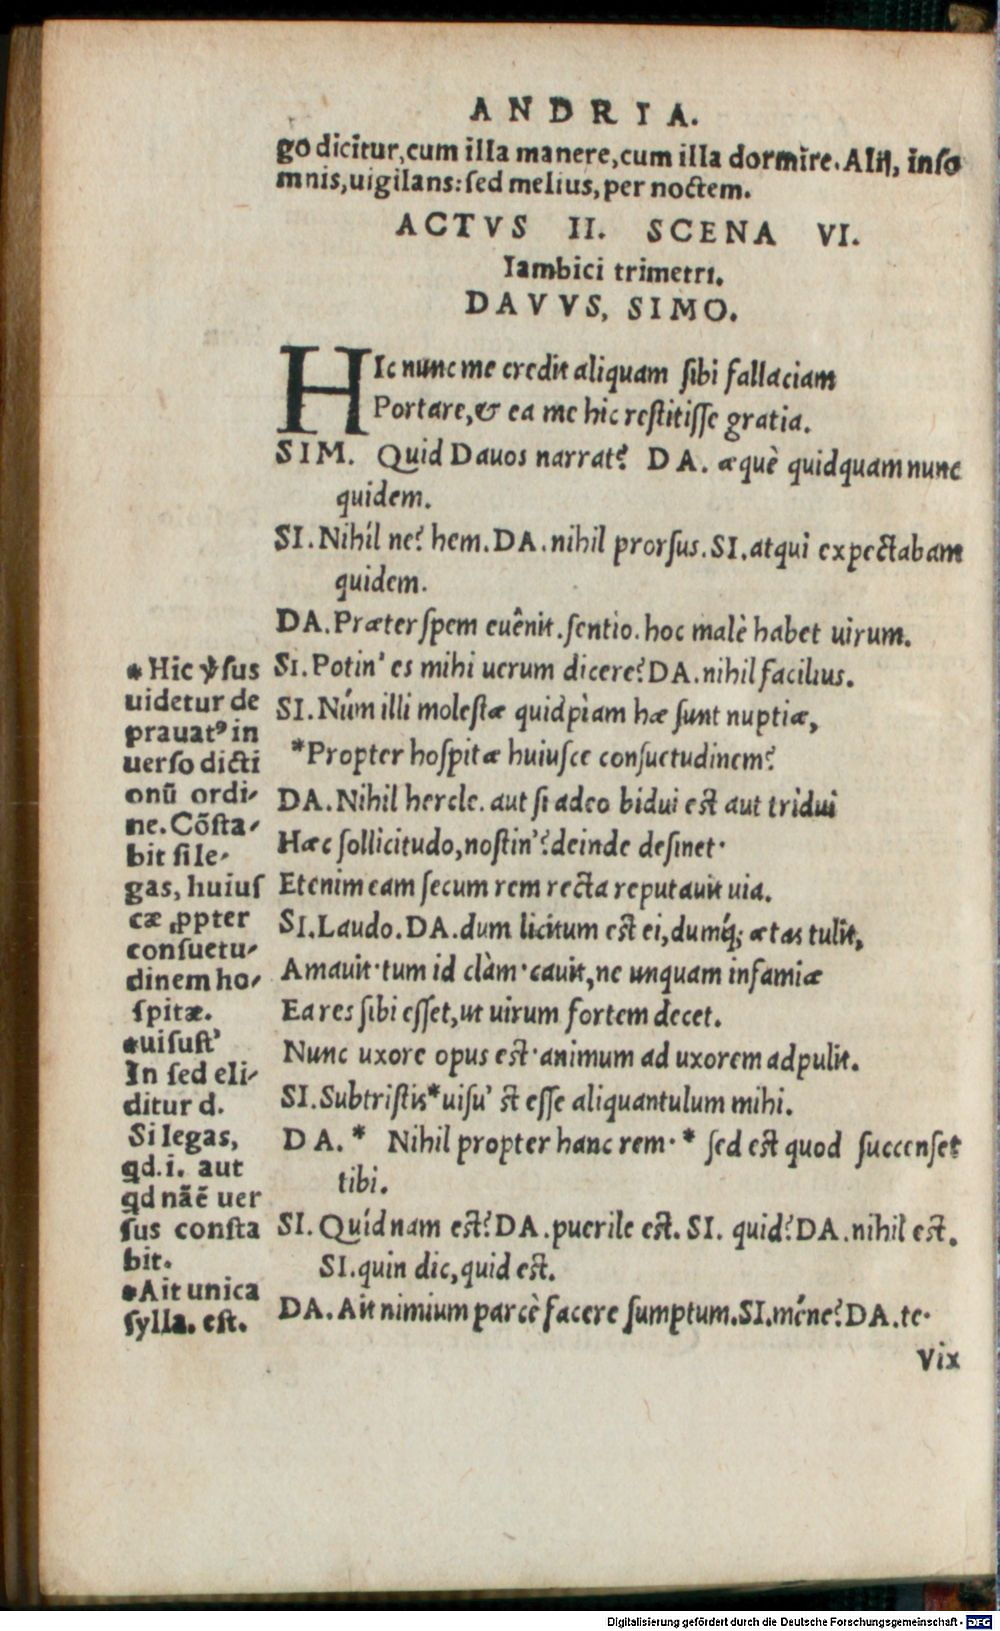 ANDRIA.
go dicitur, cum illa manere, cum illa dormire. Alij, inso
mnis, uigilans: sed melius, per noctem.
ACTVS II. SCENA VI.
Iambici trimetri.
DAVVS, SIMO.
HIc nunc me credit aliquam sibi fallaciam
Portare, & ea me hic restitisse gratia.
SIM. Quid Dauos narrat? DA. æquè quidquam nunc
quidem.
SI. Nihíl ne? hem. DA. nihil prorsus. SI. atqui expectabam
quidem.
DA. Præter spem euênit. sentio. hoc malè habet uirum.
SI. Potin' es mihi uerum dicere? DA. nihil facilius.
SI. Núm illi molestæ quidpìam hæ sunt nuptiæ,
*Propter hospitæ huiusce consuetudinem?
DA. Nihil hercle. aut si adeo bidui est aut tridui
Hæc sollicitudo, nostin'? deinde desinet·
Etenim eam secum rem recta reputauit uia.
SI. Laudo. DA. dum licitum est ei, dumq́; ætas tulit,
Amauit· tum id clàm· cauit, ne unquam infamiæ
Ea res sibi esset, ut uirum fortem decet.
Nunc uxore opus est· animum ad uxorem adpulit.
SI. Subtristis *uisu' st esse aliquantulum mihi.
DA. * Nihil propter hanc rem· * sed est quod succenset
tibi.
SI. Quídnam est? DA. puerile est. SI. quid? DA. nihil est.
SI. quin dic, quid est.
DA. Ait nimium parcè facere sumptum. SI. méne? DA. te·
Vix
*Hic ꝟsus
uidetur de
prauatꝰ in
uerso dicti
onũ ordi-
ne. Cõsta-
bit si le-
gas, huius
cæ ꝓpter
consuetu-
dinem ho-
spitæ.
*uisust'
In sed eli-
ditur d.
Si legas,
qd. i. aut
qd nãẽ uer
sus consta
bit.
*Ait unica
sylla. est.
Digitalisierung gefördert durch die Deutsche Forschungsgemeinschaft - DFG